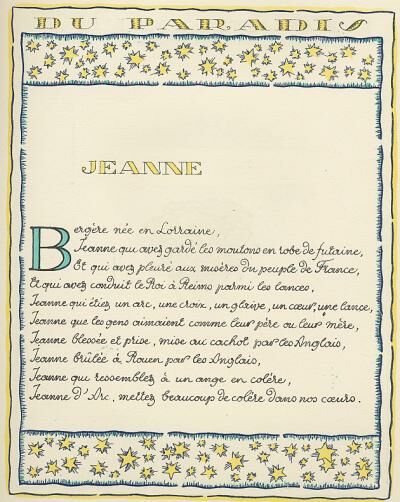 DU PARADIS
JEANNE
Bergère née en Lorraine,
Jeanne qui avez gardé les moutons en robe de futaine,
Et qui avez pleuré aux misères du peuple de France,
Et qui avez conduit le Roi à Reims parmi les lances,
Jeanne qui étiez un arc, une croix, un glaive, un cœur, une lance,
Jeanne que les gens aimaient comme leur père ou leur mère,
Jeanne blessée et prise, mise au cachot par les Anglais,
Jeanne brûlée à Rouen par les Anglais,
Jeanne qui ressemblez à un ange en colère,
Jeanne d'Arc, mettez beaucoup de colère dans nos cœurs.